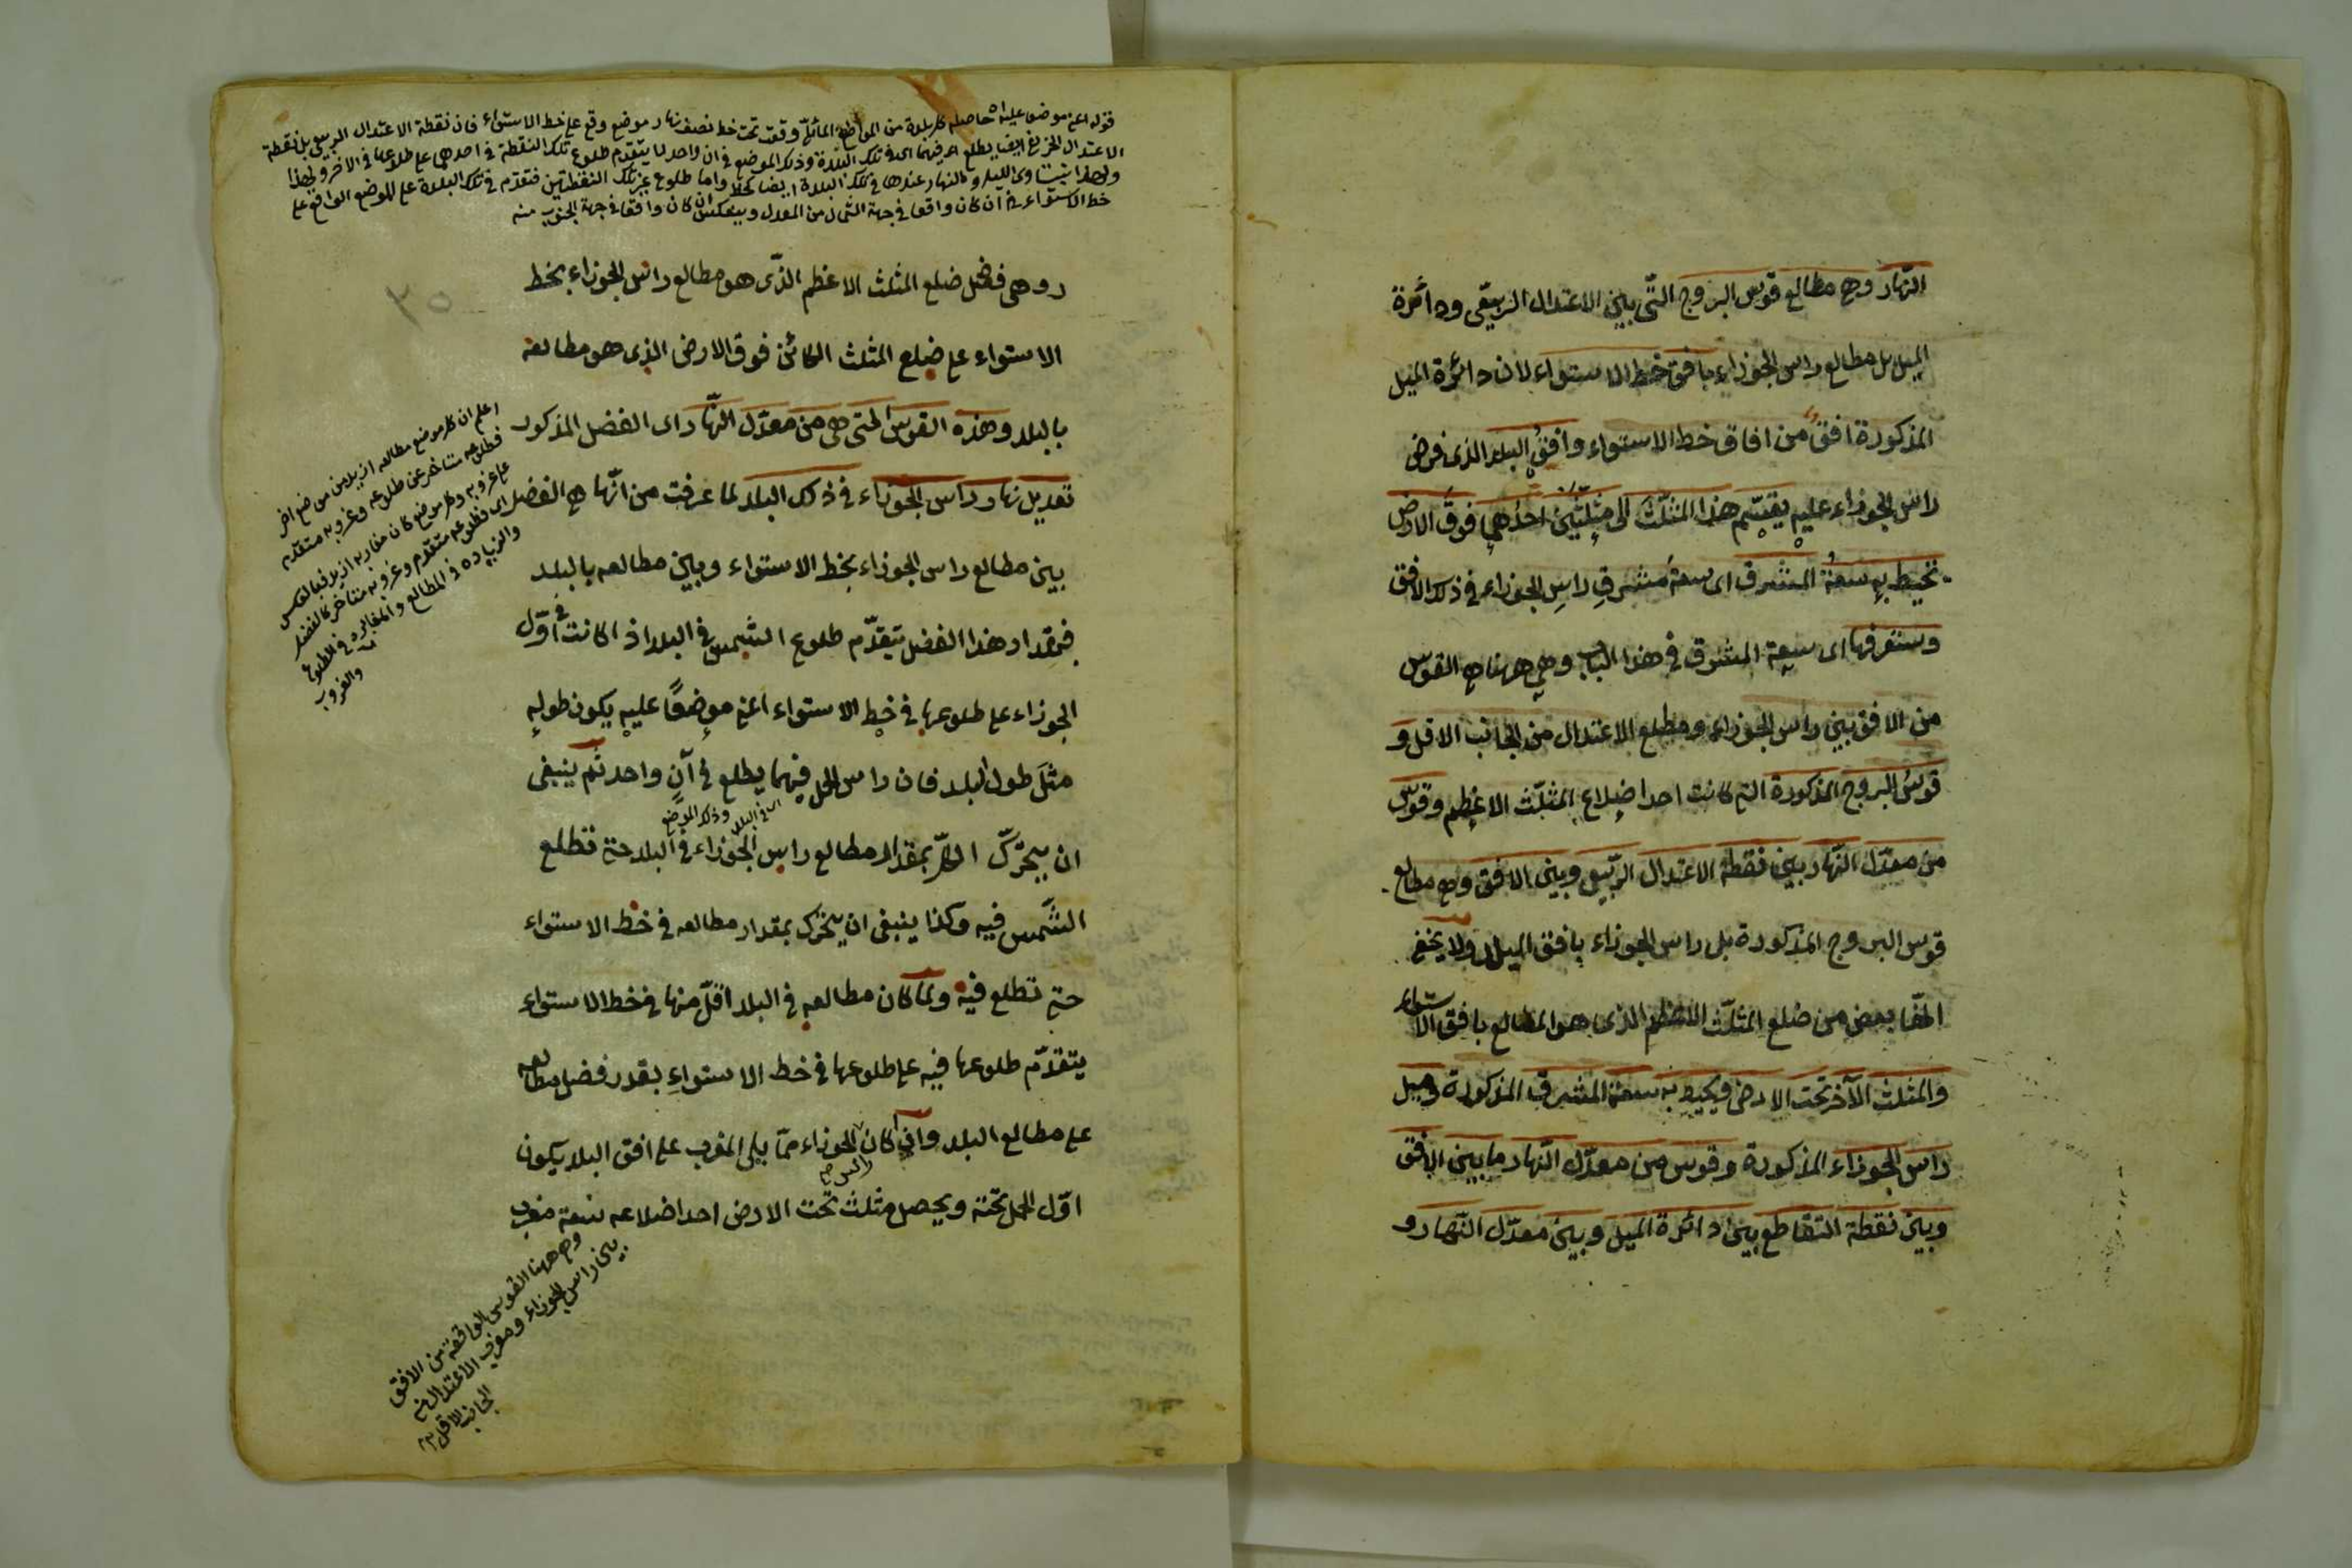 النّهار وهى مطالع قوس البروج التّى بين الاعتدال الربيعى ودائرة
الميل بل مطالع راس الجوزاء بافق خط الاستواء لان دائرة الميل
المذكورة افق من افاق خط الاستواء وافق البلد الذى فرض
راس الجوزاء عليه يقسّم هذا المثلّث الى مثلّثين احدهما فوق الارض
تحيط به سعة المشرق اى سعة مشرق راس الجوزاء فى ذلك الافق
وستعرفها اى سعة المشرق فى هذا الباب وهى ههنا هى القوس
من الافق بين راس الجوزاء ومطلع الاعتدال من الجانب الاقل و
قوس البروج المذكورة التى كانت احد اضلاع المثلّث الاعظم وقوس
من معدّل النّهار بين نقطة الاعتدال الرّبيعى وبين الافق وهى مطالع
قوس البروج المذكورة بل راس الجوزاء بافق البلد ولا يخفى
انّها بعض من ضلع المثلّث الاعظم الذى هو المطالع بافق الاستواء
والمثلث الآخر تحت الارض ويحيط به سعة المشرق المذكورة وميل
راس الجوزاء المذكورة وقوس من معدّل النّهار ما بين الافق
وبين نقطة التقاطع بين دائرة الميل وبين معدّل النّهار و
قوله اعنى موضعا عليه اه حاصله كل بلدة من المواضع المائلة وقعت تحت خط نصف نهار موضع وقع على خط الاستواء فان نقطة الاعتدال الربيعى بل نقطة
الاعتدال الخريفى ايضا يطلع فيهما اى فى تلك البلدة وذلك الموضع فى ان واحد لا يتقدم طلوع تلك النقطة فى احدهما على طلوعها فى الاخر ولهذا
يتساوى الليل والنهار عندها فى تلك البلدة ايضا واما طلوع غير تلك النقطتين فتقدم فى تلك البلدة على الموضع الواقع على
خط الاستواء ان كان واقعا فى جهة الشمال من المعدل وينعكس ان كان واقعا فى جهة الجنوب منه
د وهى فضل ضلع المثلث الاعظم الذّى هو مطالع راس الجوزاء بخط
الاستواء على ضلع المثلث الكائن فوق الارض الذى هو مطالعه
بالبلد وهذه القوس التى هى من معدّل النّهار اى الفضل المذكور
تعديل نهار راس الجوزاء فى ذلك البلد لما عرفت من انّها هى الفضل
بين مطالع راس الجوزاء بخط الاستواء وبين مطالعه بالبلد
فبمقدار هذا الفضل يتقدّم طلوع الشمس فى البلد اذا كانت فى اوّل
الجوزاء على طلوعها فى خط الاستواء اعنى موضعًا عليه يكون طوله
مثل طول البلد فان راس الحمل فيهما يطلع فى آن واحد ثم ينبغى
اى فى البلد وذلك الموضع
ان يتحرّك الكلّ بمقدار مطالع راس الجوزاء فى البلد حتى تطلع
الشّمس فيه وكذا ينبغى ان يتحرك بمقدار مطالعه فى خط الاستواء
حتى تطلع فيه ولما كان مطالعه فى البلد اقلّ منها فى خط الاستواء
يتقدّم طلوعها فيه على طلوعها فى خط الاستواء بقدر فضل مطالعه
على مطالع البلد وان كان الجوزاء ممّا يلى المغرب على افق البلد يكون
راس صح
اوّل الحمل تحته ويحصل مثلث تحت الارض احد اضلاعه سعة مغرب
اعلم ان كل موضع مطالعه ازيد من موضع اخر
فطلوعه متاخر عن طلوعه وغروبه متقدم
على غروبه وكل موضع كان مغاربه ازيد فبالعكس
اى فطلوعه متقدم وغروبه متاخر كالفضل
والزيادة فى المطالع والمغارب فى الطلوع
والغروب
وهى ههنا القوس الواقعة من الافق
بين راس الجوزاء ومغرب الاعتدال من
الجانب الاقل